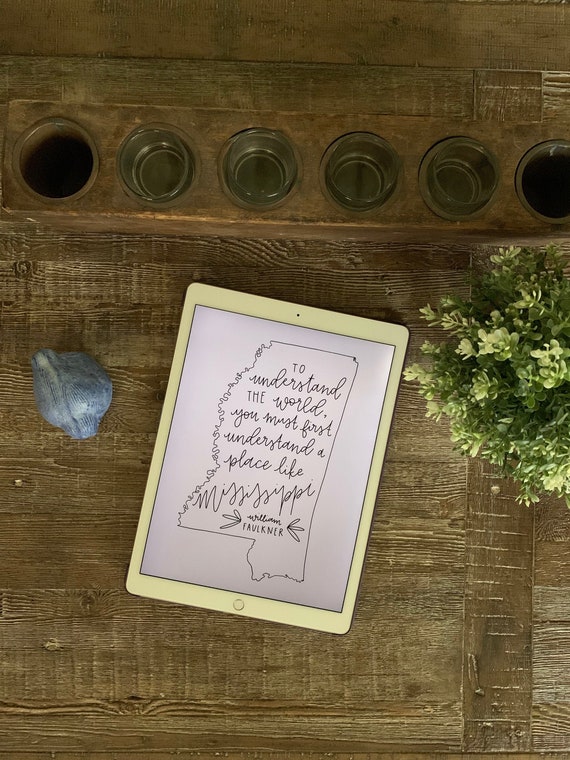 TO
understand
THE world,
you must first
understand a
place like
Mississippi
william
FAULKNER